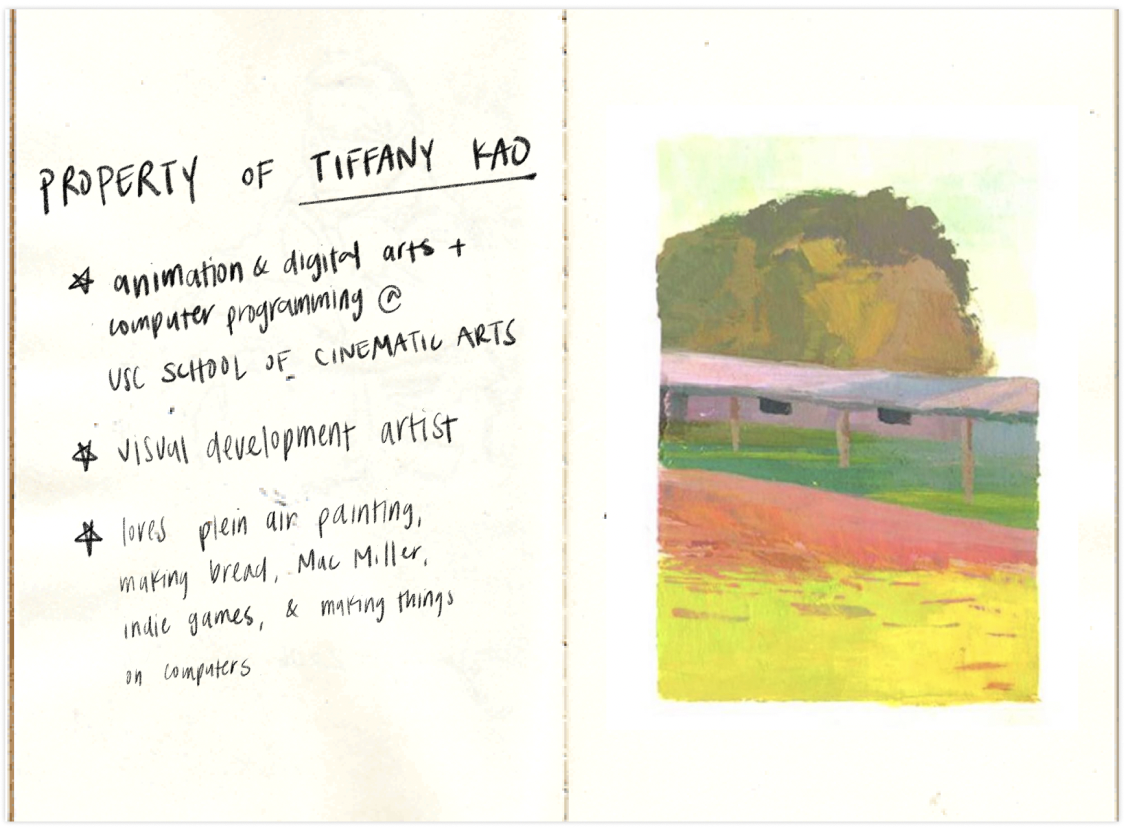 PROPERTY OF TIFFANY KAO
animation & digital arts +
computer programming @
USC SCHOOL OF CINEMATIC ARTS
visual development artist
loves plein air painting,
making bread, Mac Miller,
indie games, & making things
on computers